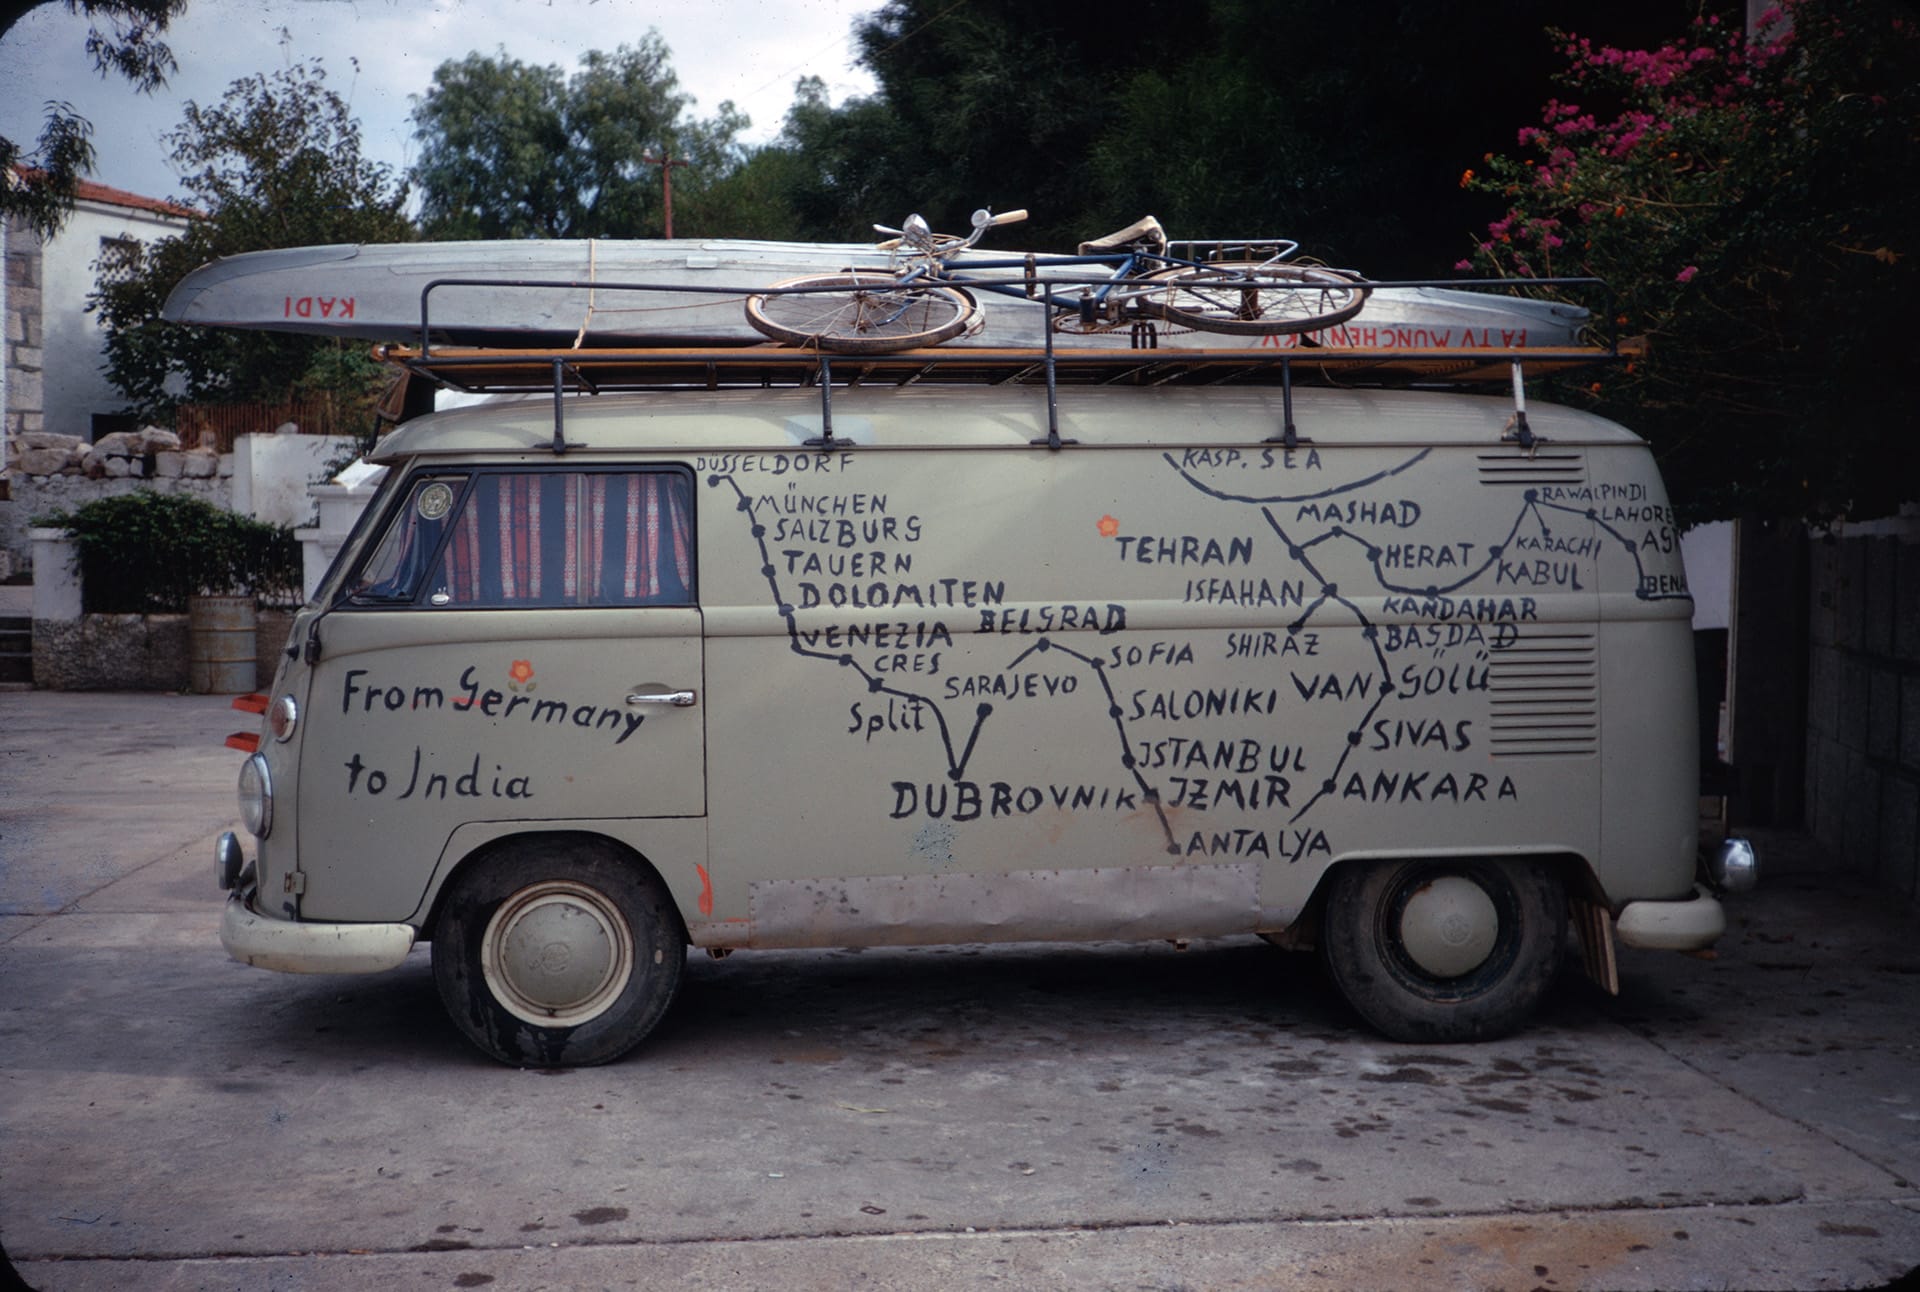 KADI
FATV MUNCHEN
From Germany
to India
DÜSSELDORF
MÜNCHEN
SALZBURG
TAUERN
DOLOMITEN
VENEZIA
CRES
Split
DUBROVNIK
SARAJEVO
BELGRAD
SOFIA
SALONIKI
ISTANBUL
IZMIR
ANTALYA
ANKARA
SIVAS
VAN GÖLÜ
BAGDAD
SHIRAZ
ISFAHAN
TEHRAN
KASP. SEA
MASHAD
HERAT
KANDAHAR
KABUL
KARACHI
RAWALPINDI
LAHORE